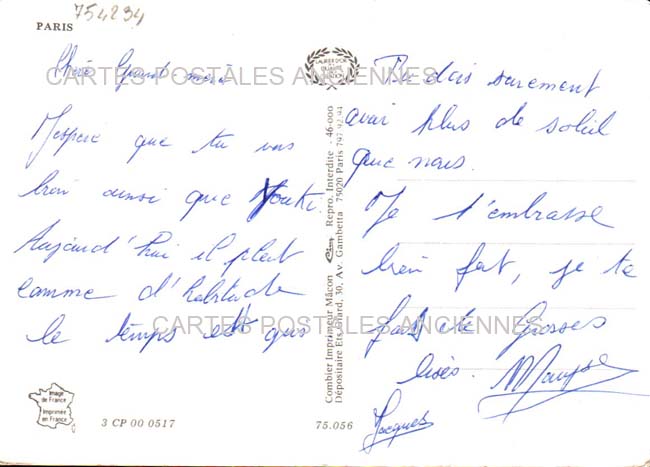 754294
PARIS
Chère Grand-mère
J'espère que tu vas
bien ainsi que Youki.
Aujourd'hui il pleut
comme d'habitude
le temps est gris
Tu dois surement
avoir plus de soleil
que nous.
Je t'embrasse
bien fort, je te
fais de Grosses
bises.
Jacques
CARTES POSTALES ANCIENNES
CARTES POSTALES ANCIENNES
Combier Imprimeur Mâcon Repro. Interdite - 46-000
Dépositaire Ets Girard, 30, Av. Gambetta 75020 Paris 797.92.94
Image
de France
Imprimée
en France
3 CP 00 0517
75.056